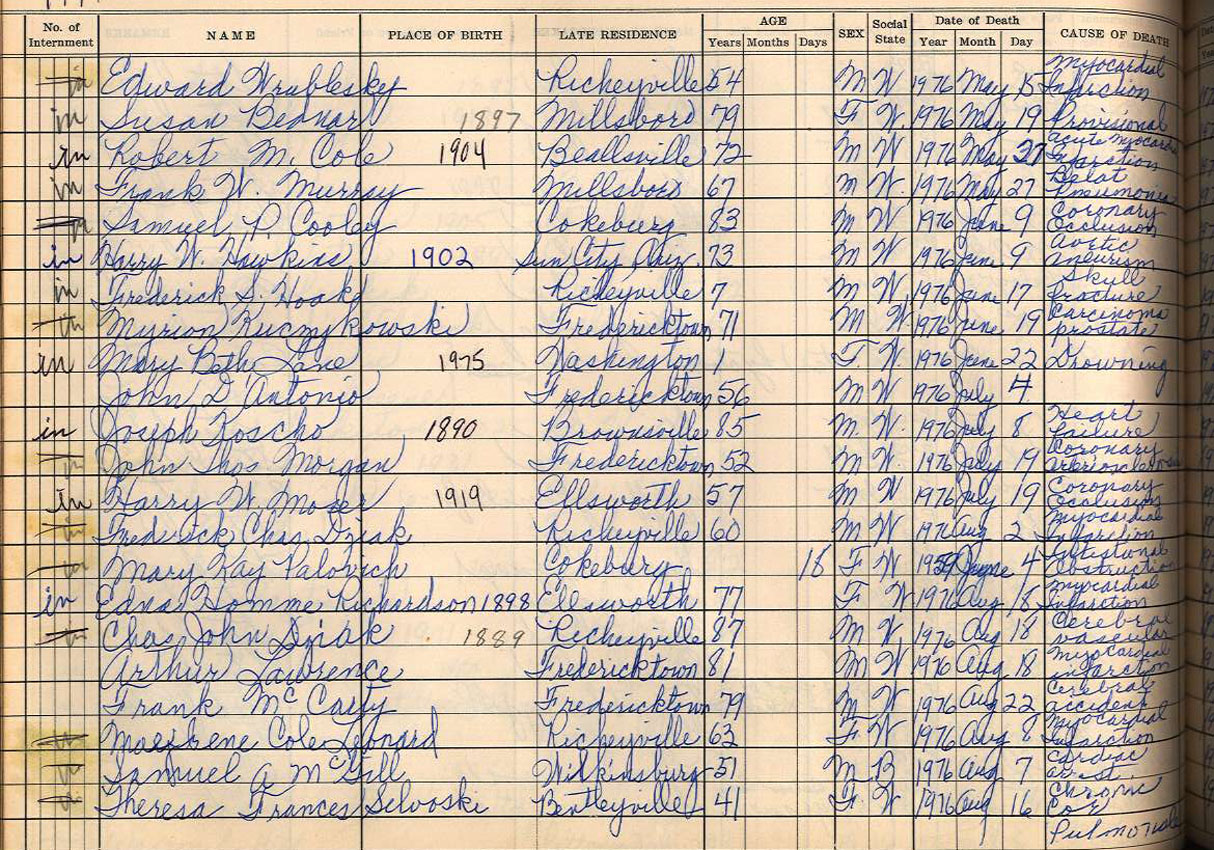 No. of Internment NAME PLACE OF BIRTH LATE RESIDENCE AGE Years Months Days SEX Social State Date of Death Year Month Day CAUSE OF DEATH
in Edward Wrublesky Richeyville 54 M W 1976 May 15 Myocardial Infarction
in Susan Bednar 1897 Millsboro 79 F W 1976 May 19 Provisional
in Robert M. Cole 1904 Beallsville 72 M W 1976 May 27 acute myocard Infarction
in Frank W. Murray Millsboro 67 M W. 1976 May 27 Pneumonia
in Samuel P Cooley Cokeburg 83 M W 1976 June 9 Coronary Occlusion
in Harry W. Hawkins 1902 Sun City Ariz. 73 M W. 1976 June 9 Aortic aneurism
in Frederick S. Hoake Richeyville 7 M W. 1976 June 17 Skull fracture
in Myrion Kuczykowski Fredericktown 71 M W. 1976 June 19 Carcinoma prostate
in Mary Beth Lane 1975 Washington 1 F. W. 1976 June 22 Drowning
John D'Antonio Fredericktown 56 M W 1976 July 4
in Joseph Koscho 1890 Brownsville 85 M. W. 1976 July 8 Heart failure
in John Thos Morgan Fredericktown 52 M W. 1976 July 19 Coronary
in Harry W. Moser 1919 Ellsworth 57 M W 1976 July 19 Coronary Occlusion
in Frederick Chas. Dziak Richeyville 60 M W 1976 Aug 2 Myocardial Infarction
in Mary Kay Palovich Cokeburg 18 F W 4 Intestional Obstruction
in Edna Homme Richardson 1898 Ellsworth 77 F W 1976 Aug 18 Myocardial Infarction
in Chas John Dziak 1889 Richeyville 87 M W. 1976 Aug 18 Cerebral vascular
Arthur Lawrence Fredericktown 81 M W 1976 Aug 18 Myocardial infarction
Frank McCarty Fredericktown 79 M W 1976 Aug 22 Cerebral accident
Mae Irene Cole Leonard Richeyville 63 F W 1976 Aug 8 Myocardial Infarction
in Samuel A McGill Wilkinsburg 51 M B 1976 Aug 7 Cardiac arrest
in Theresa Frances Selvoski Bentleyville 41 F W 1976 Aug 16 Chronic Cor
Pulmonale